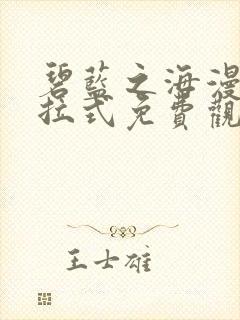 碧藍之海漫
拉式免費觀
王士雄